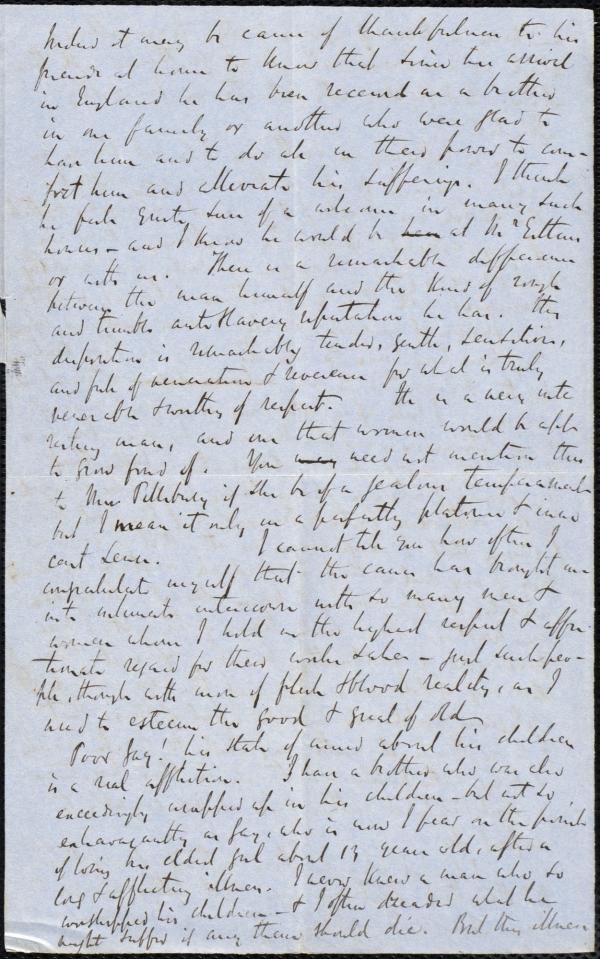 Indeed it may be cause of thankfulness to his
friends at home to know that since his arrival
in England he has been received as a brother
in one family or another who were glad to
have him and to do all in their power to com-
fort him and alleviate his sufferings. I think
he feels quite sure of a welcome in many such
houses - and I know he would be at Mr Estlin's
or with us. There is a remarkable difference
between the man himself and the kind of rough
and tumble anti slavery reputation he has. His
disposition is remarkably tender, gentle, sensitive,
and full of veneration & reverence for what is truly
venerable & worthy of respect. He is a very inte
resting man, and one that women would be apt
to grow fond of. You need not mention this
to Mrs Pillsbury if she be of a jealous temperament
but I mean it only in a perfectly platonic & inno
cent sense. I cannot tell you how often I
congratulate myself that the cause has brought me
into intimate intercourse with so many men &
women whom I hold in the highest respect & affec
tionate regard for their works sakes - just such peo-
ple, though with more of flesh & blood reality, as I
used to esteem the good & great of old.
Poor Gay! his state of mind about his children
is a real affliction. I have a brother who was also
exceedingly wrapped up in his children - but not so
extravagantly as Gay, who is now I fear on the point
of losing his eldest girl about 13 years old, after a
long & afflicting illness. I never knew a man who so
worshipped his children - & I often dreaded what he
might suffer if any them should die. But this illness